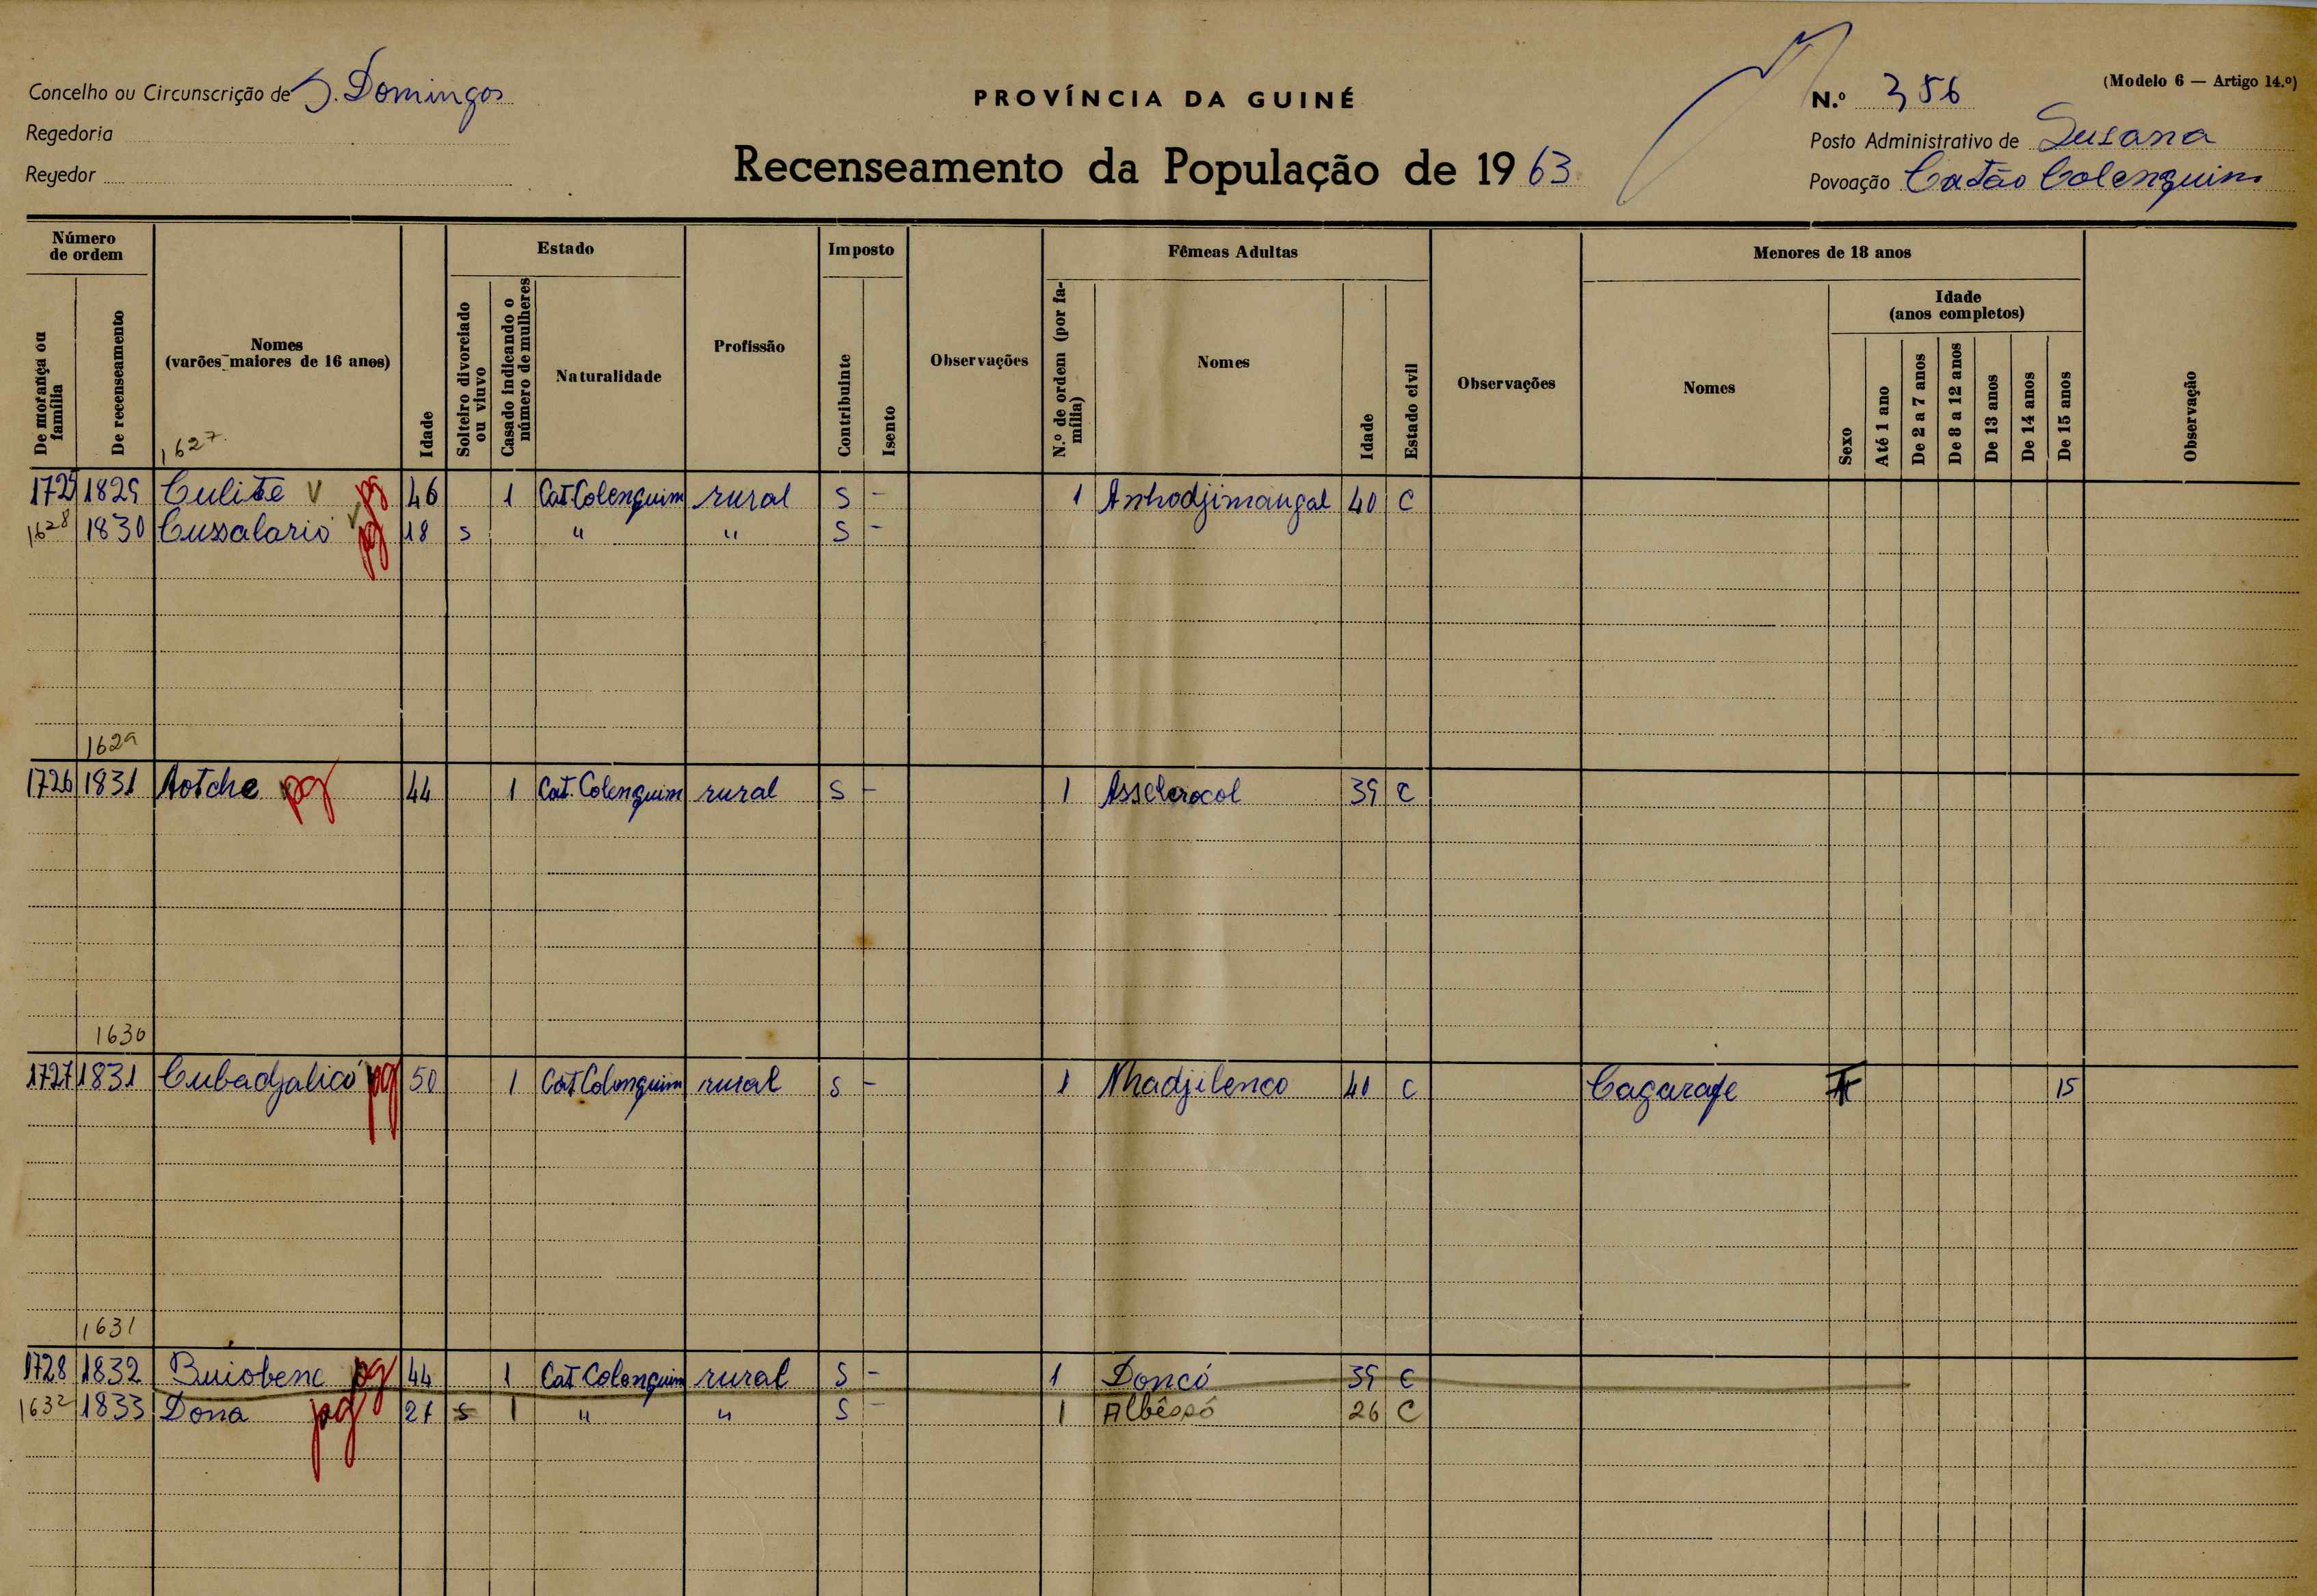 Concelho ou Circunscrição de S. Domingos
Regedoria
Regedor
PROVÍNCIA DA GUINÉ
Recenseamento da População de 1963
(Modelo 6 — Artigo 14.º)
N.º 356
Posto Administrativo de Susana
Povoação Catão Colenquim
Número de ordem
De morança ou família
De recenseamento
Nomes (varões maiores de 16 anos)
1627
Idade
Estado
Solteiro divorciado ou viuvo
Casado indicando o número de mulheres
Naturalidade
Profissão
Imposto
Contribuinte
Isento
Observações
Fêmeas Adultas
N.º de ordem (por família)
Nomes
Idade
Estado civil
Observações
Menores de 18 anos
Nomes
Idade (anos completos)
Sexo
Até 1 ano
De 2 a 7 anos
De 8 a 12 anos
De 13 anos
De 14 anos
De 15 anos
Observação
1725 1829 Culite V pg 46 1 Cat Colenquim rural S - 1 Anhodjimangal 40 C
1628 1830 Cussalario V pg 18 s " " S -
1629
1726 1831 Aotche pg 44 1 Cat. Colenquim rural S - 1 Asselerocol 39 C
1630
1727 1831 Cubadjalicó pg 50 1 Cat Colenquim rural S - 1 Nhadjilenco 40 C Cagarafe F 15
1631
1728 1832 Buiobena pg 44 1 Cat Colenquim rural S - 1 Doncó 39 C
1632 1833 Dona pg 21 s 1 " " S - 1 Albêssó 26 C